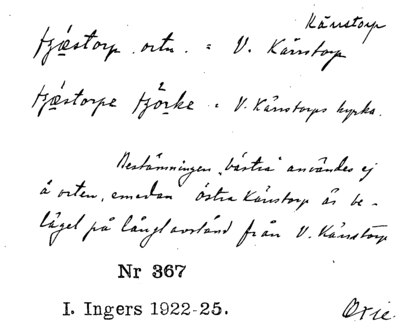 Kärrstorp
tjǽ̨storp ortn. = V. Kärrstorp
tjǽ̨storpe tjörke = V. Kärrstorps kyrka.
Bestämningen „västra” användes ej
å orten, emedan östra Kärrstorp är be-
läget på långt avstånd från V. Kärrstorp
Nr 367
I. Ingers 1922-25.
Oxie.